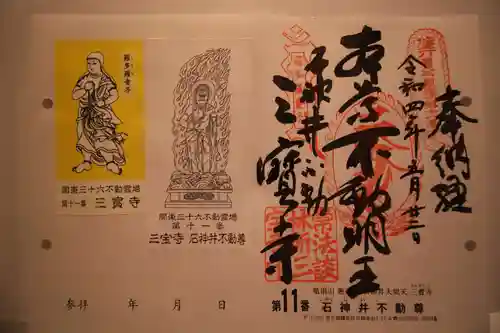 奉納経
令和四年五月廿二日
本尊不動明王
石神井不動
三寳寺
第11番 石神井不動尊
羅多羅童子
関東三十六不動霊場
第十一番 三寳寺
関東三十六不動霊場
第十一番
三宝寺 石神井不動尊
参拝 年 月 日